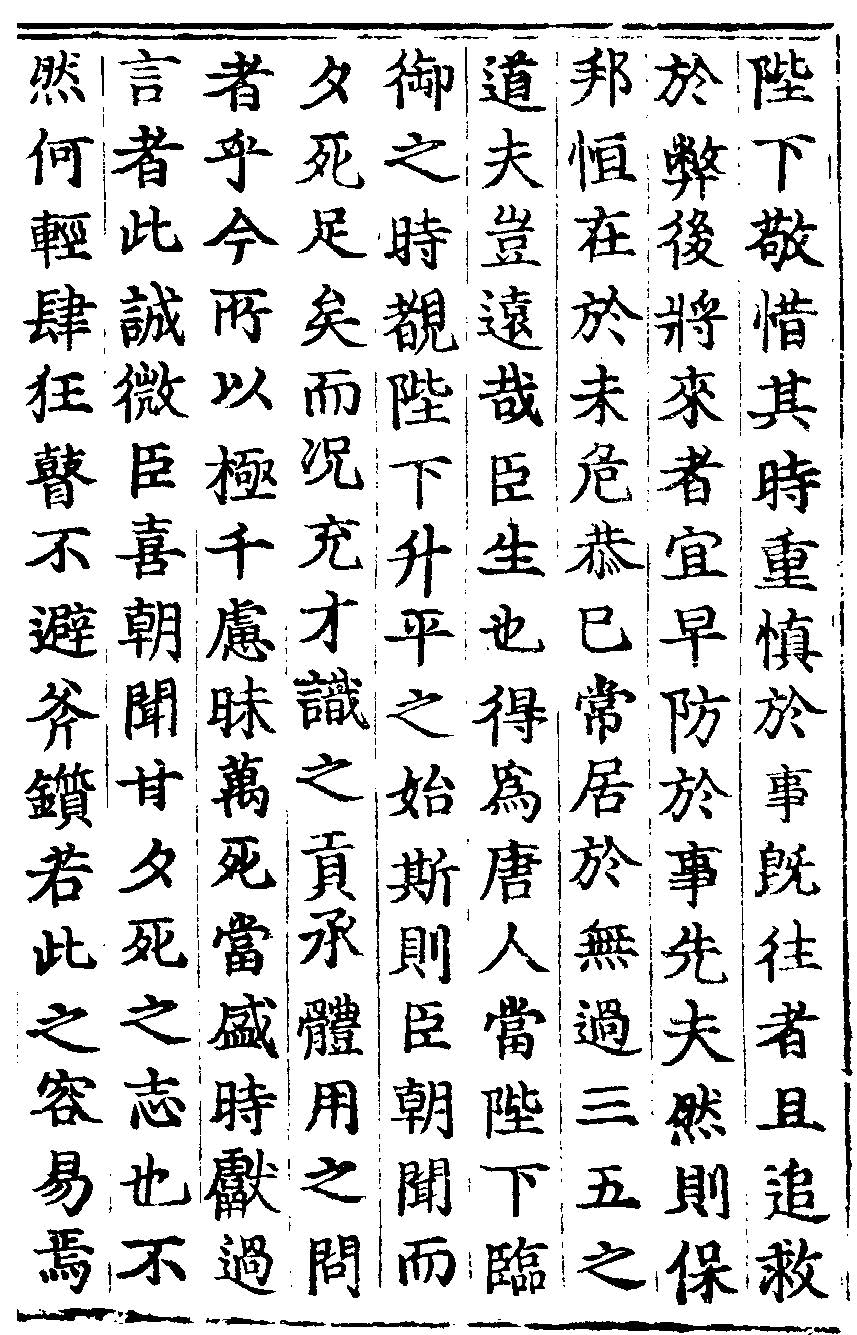 陛下敬惜其時重慎於事既往者且追救
於弊後將來者宜早防於事先夫然則保
邦恒在於未危恭已常居於無過三五之
道夫豈遠哉臣生也得爲唐人當陛下臨
御之時覩陛下升平之始斯則臣朝聞而
夕死足矣而况充才識之貢承體用之問
者乎今所以極千慮昧萬死當盛時獻過
言者此誠微臣喜朝聞甘夕死之志也不
然何輕肆狂瞽不避斧鑕若此之容易焉